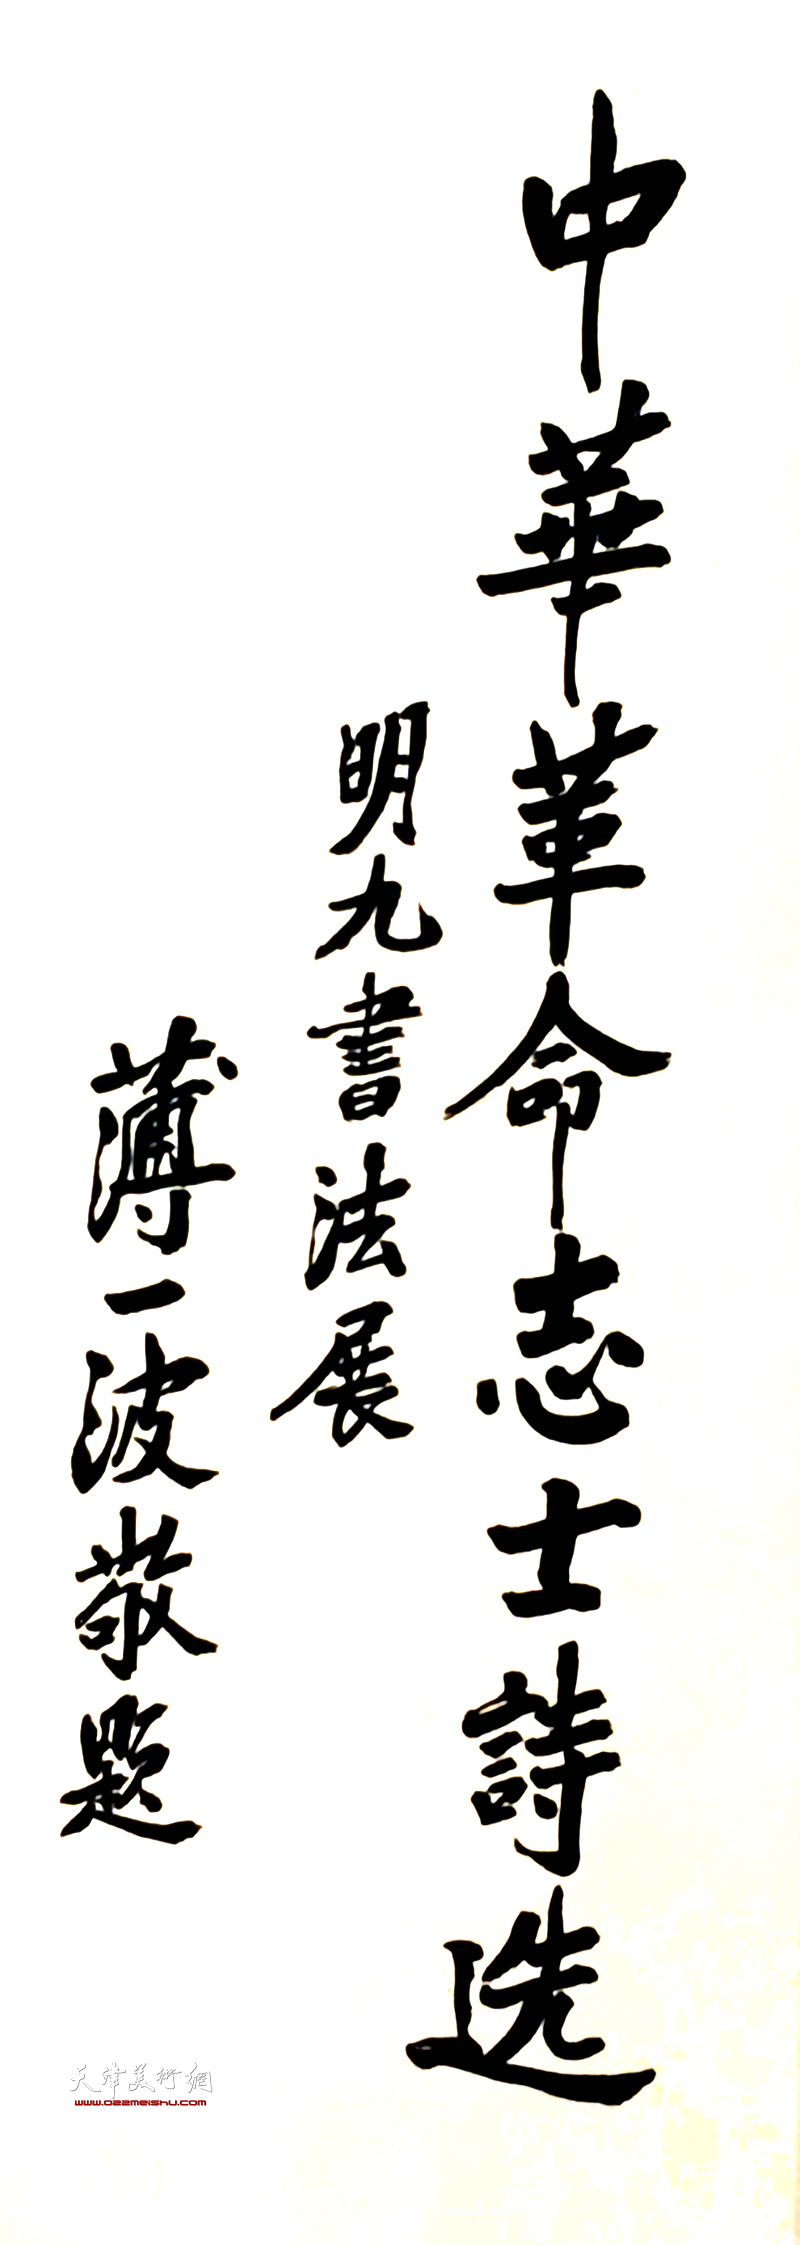 中華革命志士詩选
明九書法展
薄一波敬题
天津美術網
www.022meishu.com